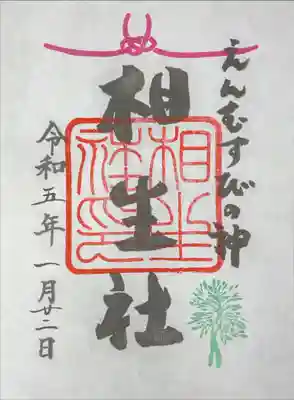 えんむすびの神
相生社
相生社神印
令和五年一月廿二日